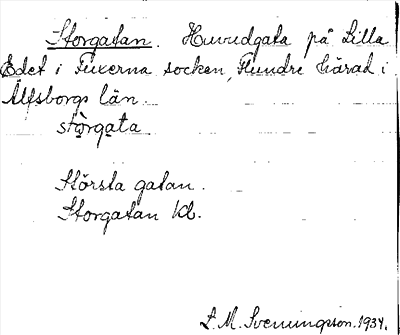 Storgatan. Huvudgata på Lilla
Edet i Fuxerna socken, Flundre härad i
Älfsborgs län.
stòrgata
Största gatan.
Storgatan Kl.
L. M. Svenungsson. 1934.